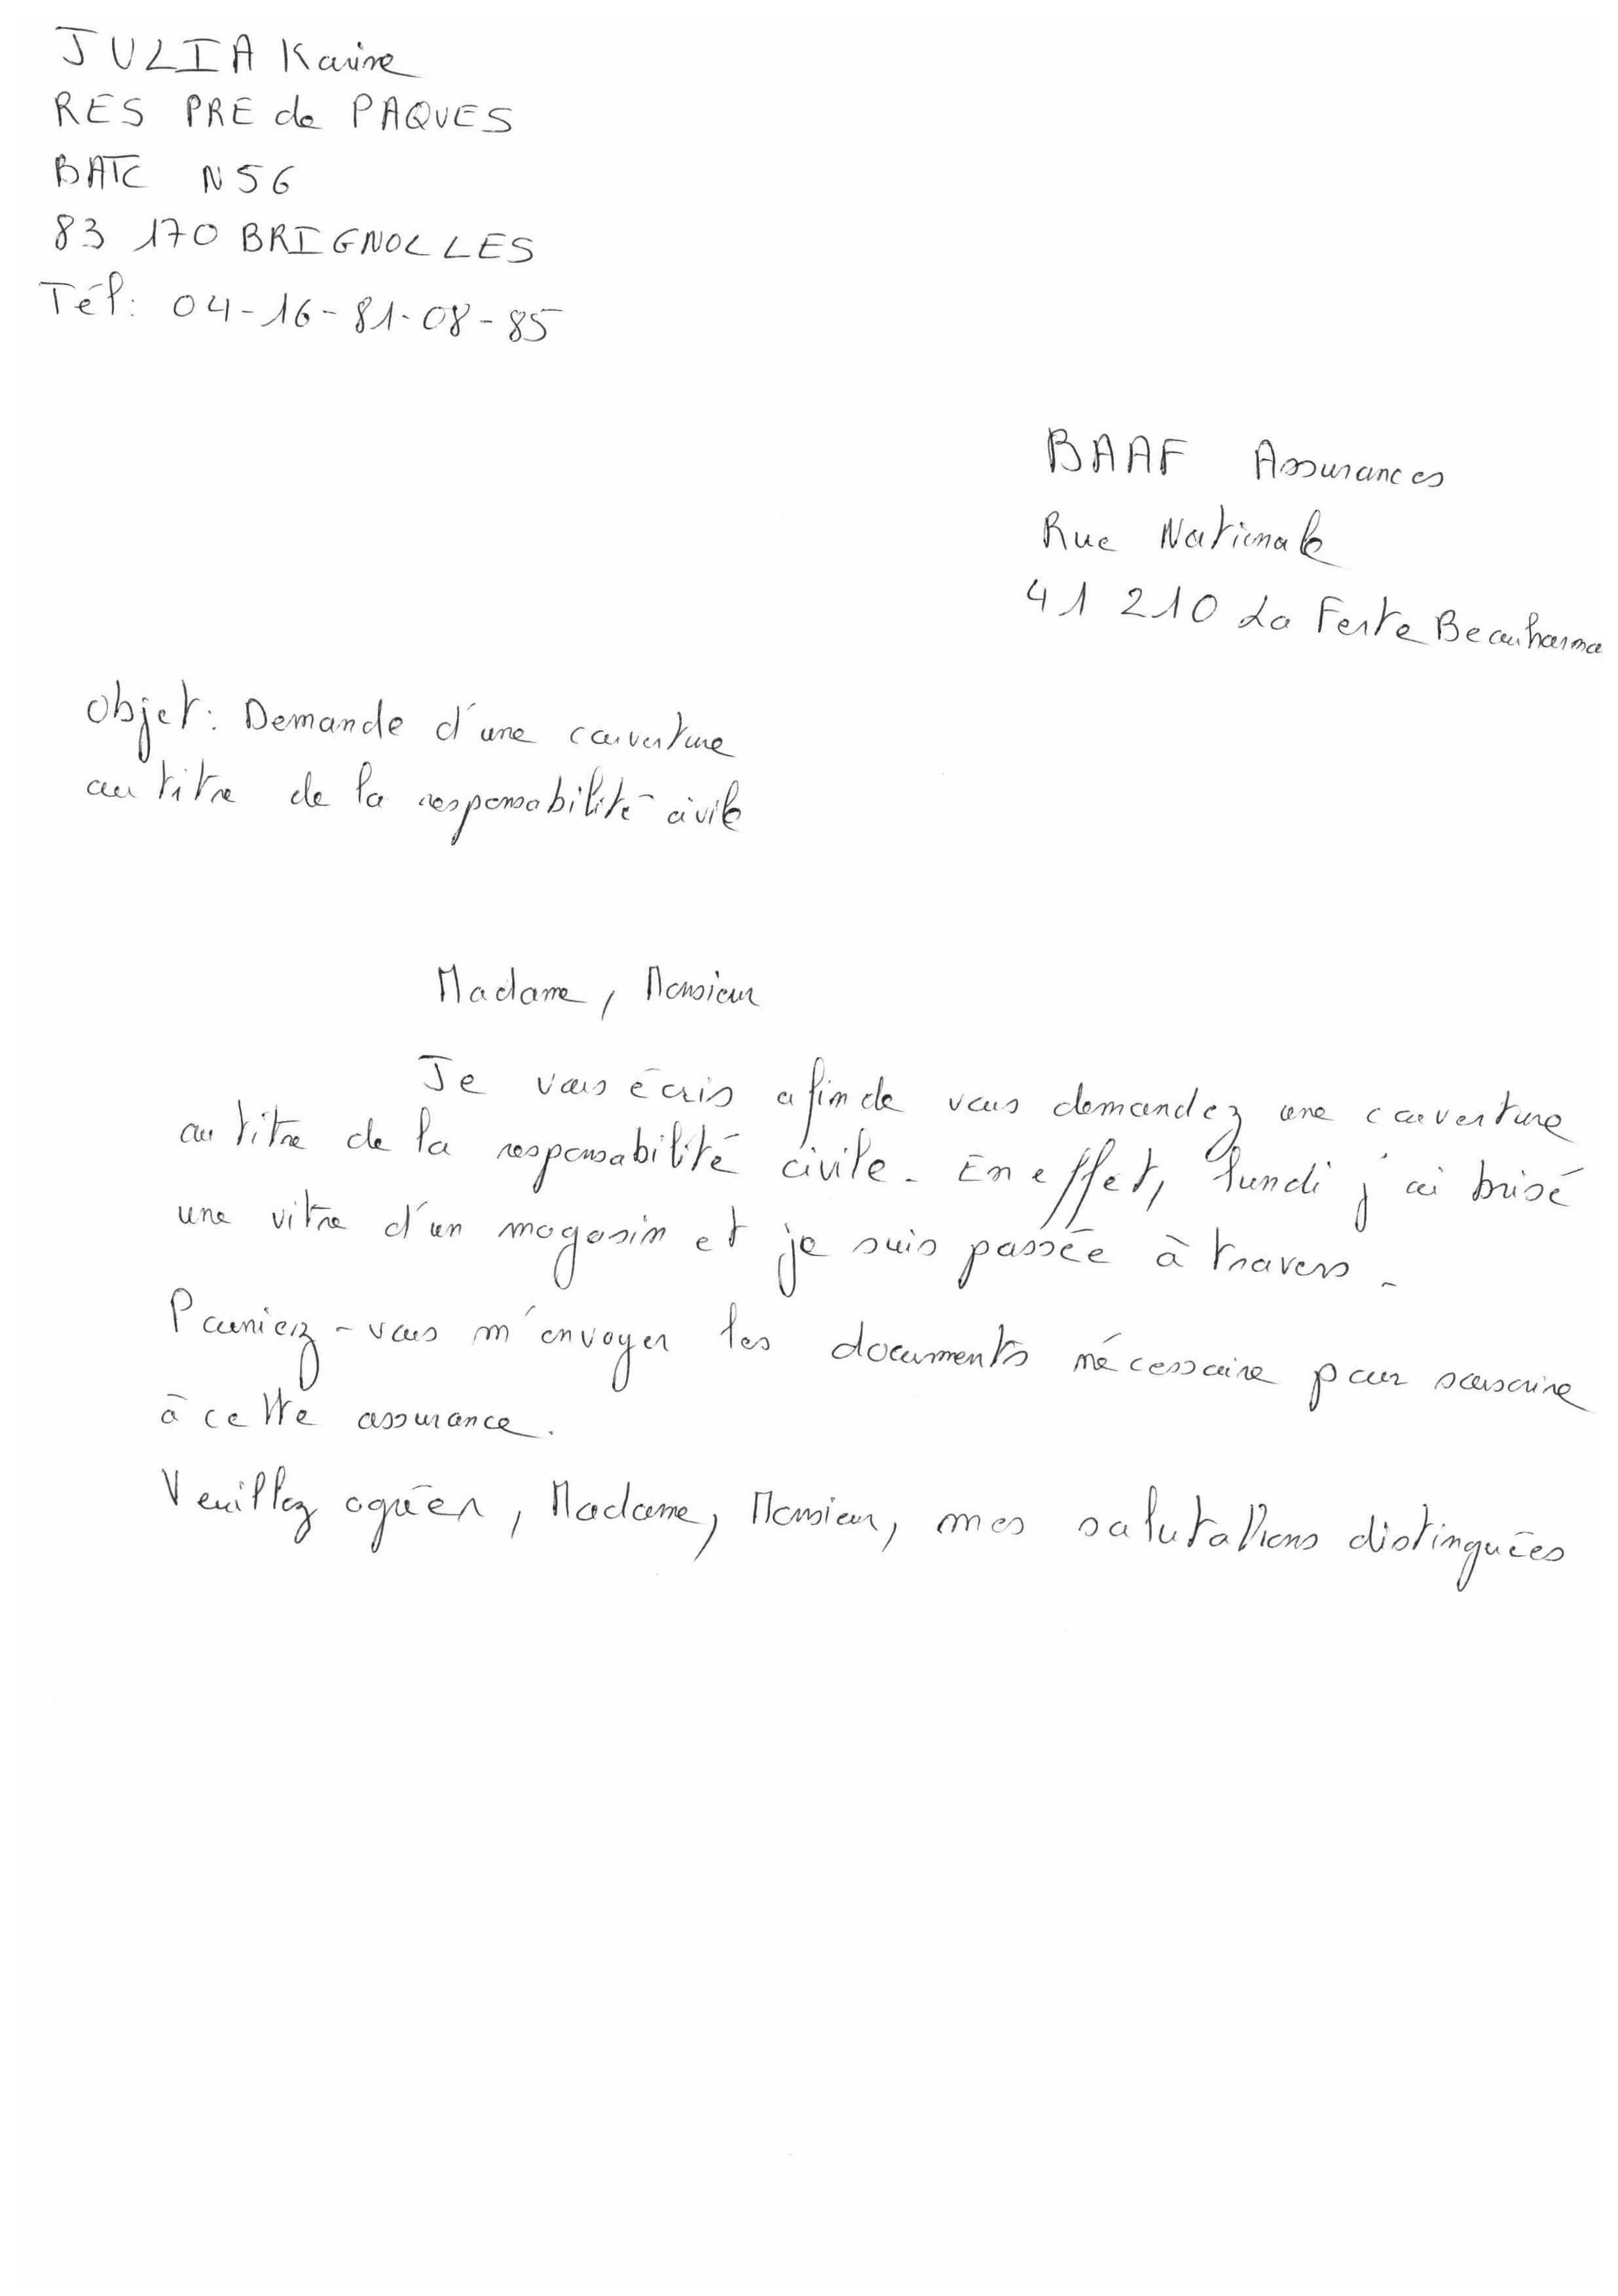 JULIA Karine
RES PRE de PAQUES
BATC N56
83 170 BRIGNOLLES
Tél: 04-16-81-08-85
BAAF Assurances
Rue Nationale
41 210 La Ferte Beauharna
objet: Demande d'une couverture
au titre de la responsabilité civile
Madame, Monsieur
Je vous écris afin de vous demandez une couverture
au titre de la responsabilité civile. En effet, lundi j'ai brisé
une vitre d'un magasin et je suis passée à travers.
Pourriez-vous m'envoyer les documents nécessaire pour souscrire
à cette assurance.
Veuillez agréer, Madame, Monsieur, mes salutations distinguées